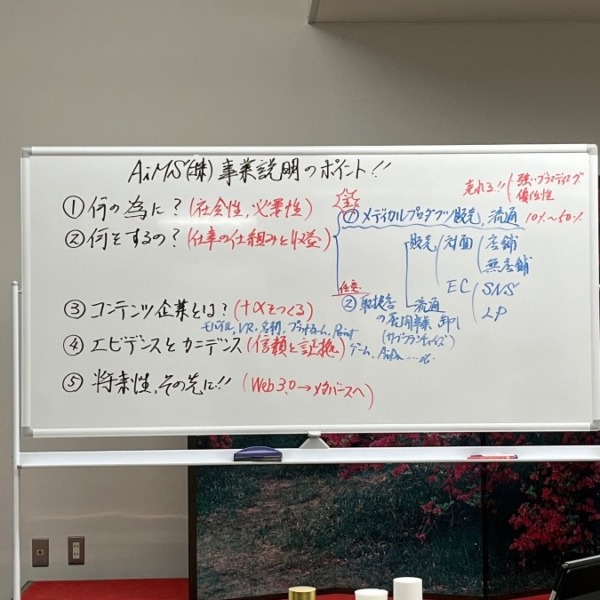 AiMS(株)事業説明のポイント!!
①何の為に?(社会性,必要性)
②何をするの?(仕事の仕組みと収益)
③コンテンツ企業とは?(+αをつくる)
モバイル,VR,名刺,プラットホーム,Point
④エビデンスとカニデンス(信頼と証拠)
ゲーム,AiDx...etc
⑤将来性,その先に!!(Web3.0→メタバースへ)
売れる!!(強いブランディング
優位性
①メディカルプロダクツ販売,流通 10%~50%
販売 対面 店舗
無店舗
EC SNS
LP
任意
②取扱店 流通
の展開事業 卸し
(サブフランチャイズ)